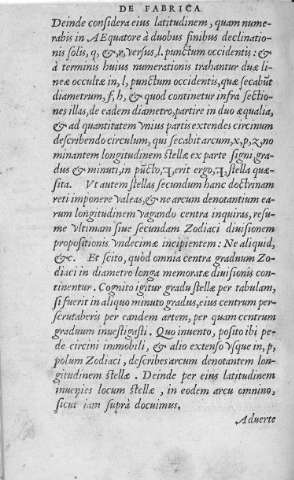 DE FABRICA
Deinde considera eius latitudinem, quam nume-
rabis in AEquatore à duobus finibus declinatio-
nis solis, q, & r, versus, l, punctum occidentis: &
à terminis huius numerationis trahantur duæ li-
neæ occultæ in, l, punctum occidentis, quæ secabũt
diametrum, f, h, & quod continetur infra sectio-
nes illas, de eadem diametro, partire in duo æqualia,
& ad quantitatem vnius partis extendes circinum
describendo circulum, qui secabit arcum, x, p, z, no
minantem longitudinem stellæ ex parte signi gra-
dus & minuti, in pũcto, ꝗ, erit ergo, ꝗ, stella quæ-
sita. Vt autem stellas secundum hanc doctrinam
reti imponere valeas, & ne arcum denotantium ea-
rum longitudinem vagando centra inquiras, resu-
me vltimam siue secundam Zodiaci diuisionem
propositionis vndecimæ incipientem: Ne aliquid,
&c. Et scito, quòd omnia centra graduum Zo-
diaci in diametro longa memoratæ diuisionis con-
tinentur. Cognito igitur gradu stellæ per tabulam,
si fuerit in aliquo minuto gradus, eius centrum per-
scrutaberis per eandem artem, per quam centrum
graduum inuestigasti. Quo inuento, posito ibi pe-
de circini immobili, & alio extenso vsque in, p,
polum Zodiaci, describes arcum denotantem lon-
gitudinem stellæ. Deinde per eius latitudinem
inuenies locum stellæ, in eodem arcu omnino,
sicut iam suprà docuimus.
Aduerte